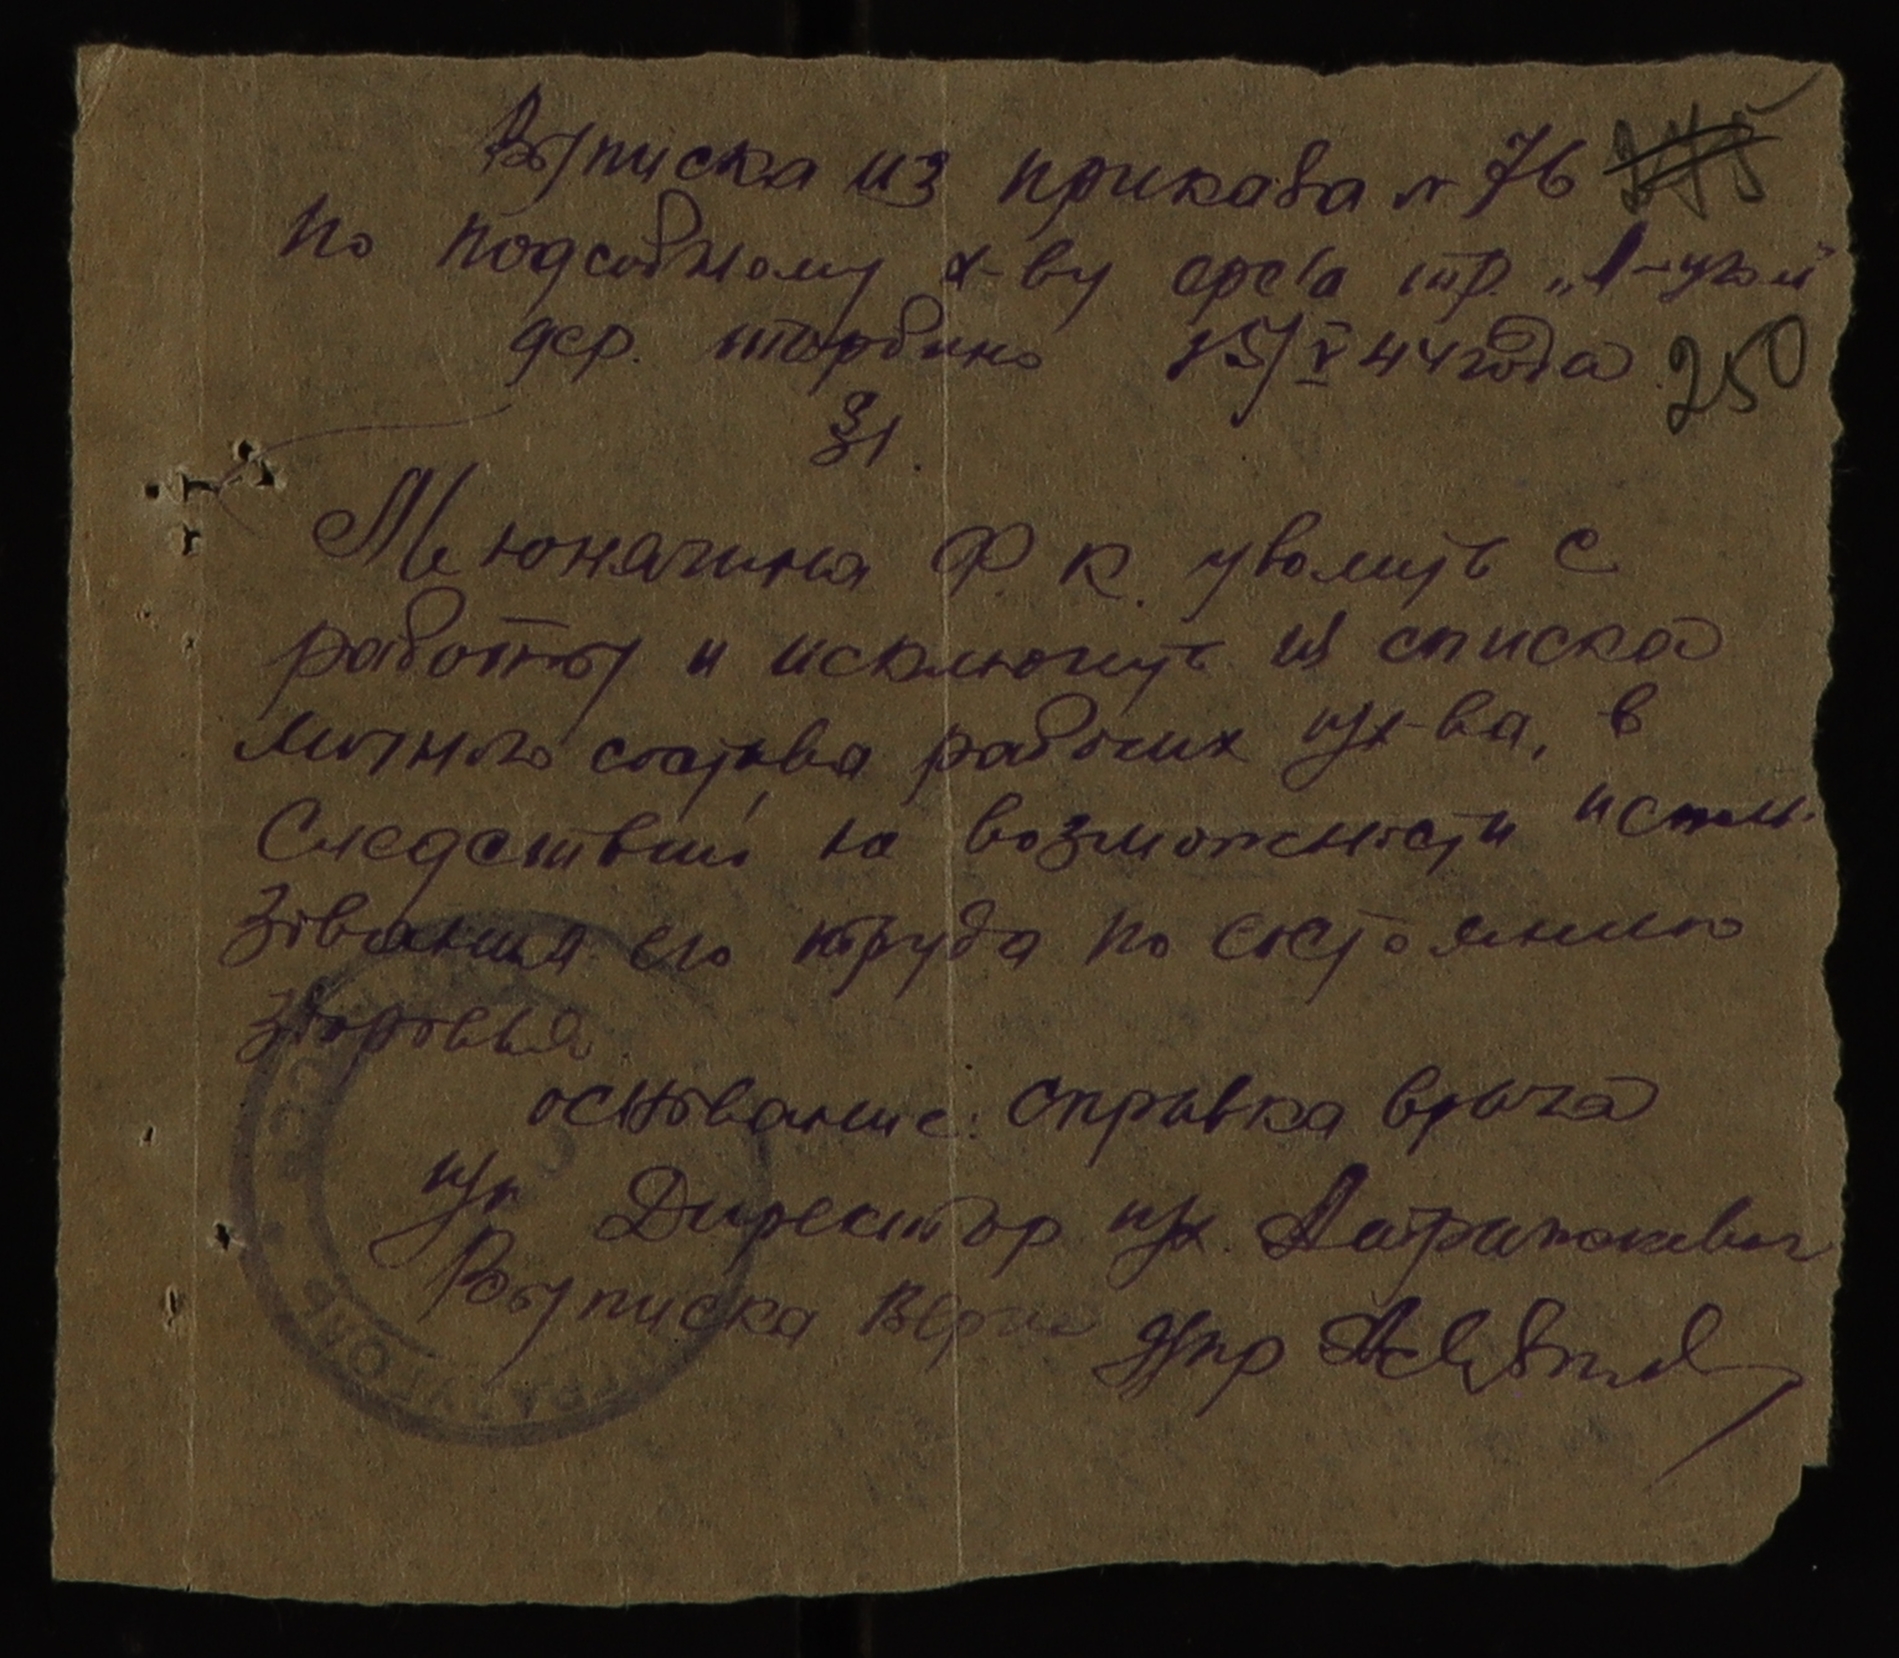 Выписка из приказа № 76
По подсобному х-ву орс'а тр. „Л-уголь"
дер. Торбино 15/V 44 года 250
§1.
Мелюнячина Ф. К. уволить с
работы и исключить из списка
личного состава рабочих п/х-ва, в
следствии не возможности исполь-
зования его труда по состоянию
здоровья.
основание: справка врача
п/п Директор п/х.
Выписка верна